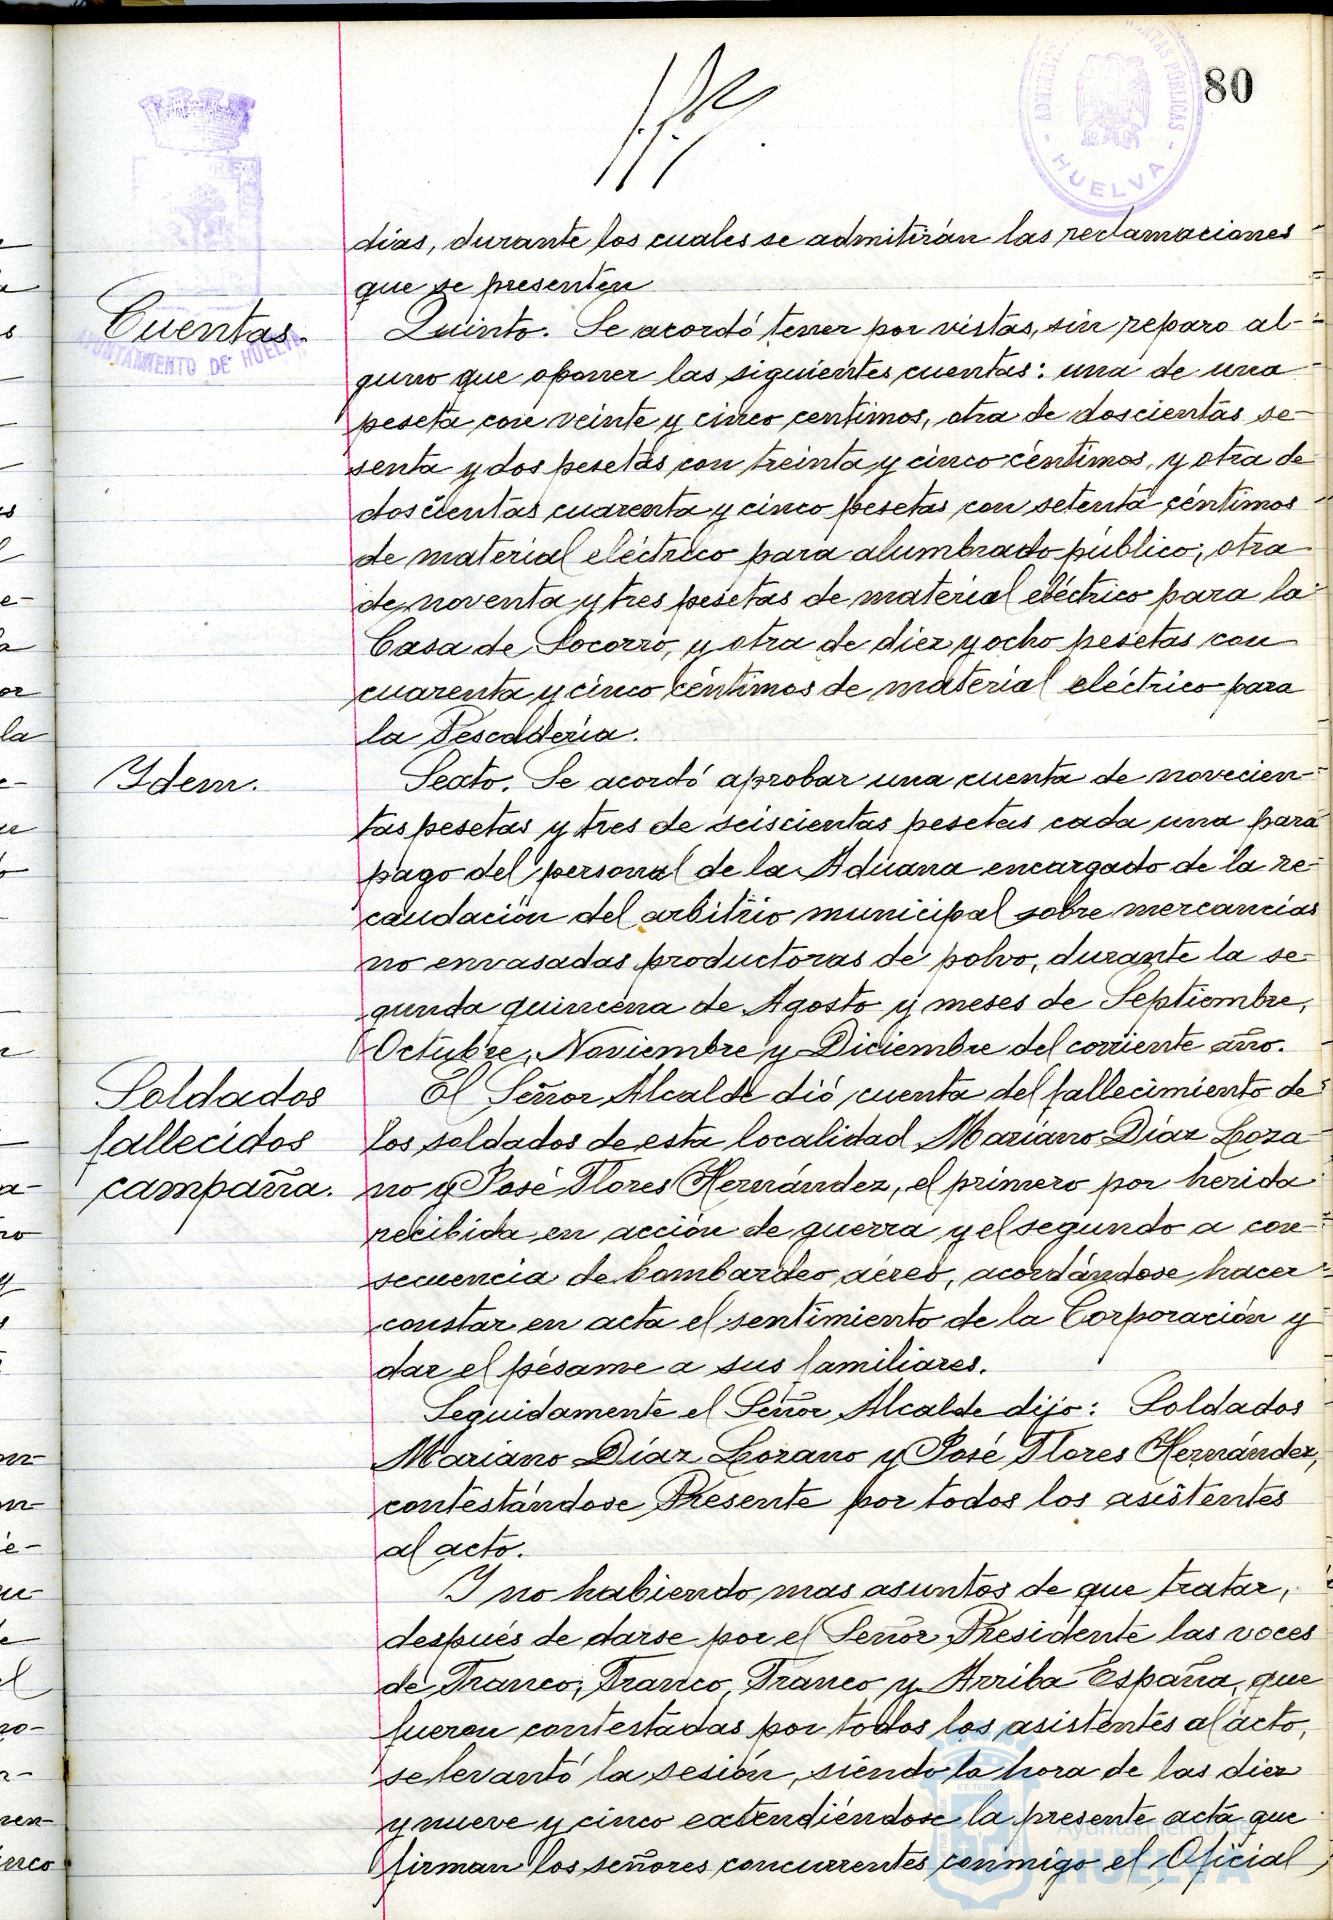 80
ADMINISTRACIÓN DE RENTAS PÚBLICAS
- HUELVA -
AYUNTAMIENTO DE HUELVA
días, durante los cuales se admitirán las reclamaciones
que se presenten
Cuentas.
Quinto. Se acordó tener por vistas, sin reparo al-
guno que oponer las siguientes cuentas: una de una
peseta con veinte y cinco centimos, otra de doscientas se-
senta y dos pesetas con treinta y cinco céntimos, y otra de
doscientas cuarenta y cinco pesetas con setenta céntimos
de material eléctrico para alumbrado público; otra
de noventa y tres pesetas de material eléctrico para la
Casa de Socorro, y otra de diez y ocho pesetas con
cuarenta y cinco céntimos de material eléctrico para
la Pescadería.
Idem.
Sexto. Se acordó aprobar una cuenta de novecien-
tas pesetas y tres de seiscientas pesetas cada una para
pago del personal de la Aduana encargado de la re-
caudación del arbitrio municipal sobre mercancías
no envasadas productoras de polvo, durante la se-
gunda quincena de Agosto y meses de Septiembre,
Octubre, Noviembre y Diciembre del corriente año.
Soldados
fallecidos
campaña.
El Señor Alcalde dió cuenta del fallecimiento de
los soldados de esta localidad Mariano Díaz Loza-
no y José Flores Hernández, el primero por herida
recibida en acción de guerra y el segundo a con-
secuencia de bombardeo aéreo, acordándose hacer
constar en acta el sentimiento de la Corporación y
dar el pésame a sus familiares.
Seguidamente el Señor Alcalde dijo: Soldados
Mariano Díaz Lozano y José Flores Hernández,
contestándose Presente por todos los asistentes
al acto.
Y no habiendo mas asuntos de que tratar,
después de darse por el Señor Presidente las voces
de Franco, Franco, Franco y Arriba España, que
fueron contestadas por todos los asistentes al acto,
se levantó la sesión, siendo la hora de las diez
y nueve y cinco extendiéndose la presente acta que
firman los señores concurrentes conmigo el Oficial
Ayuntamiento de
HUELVA